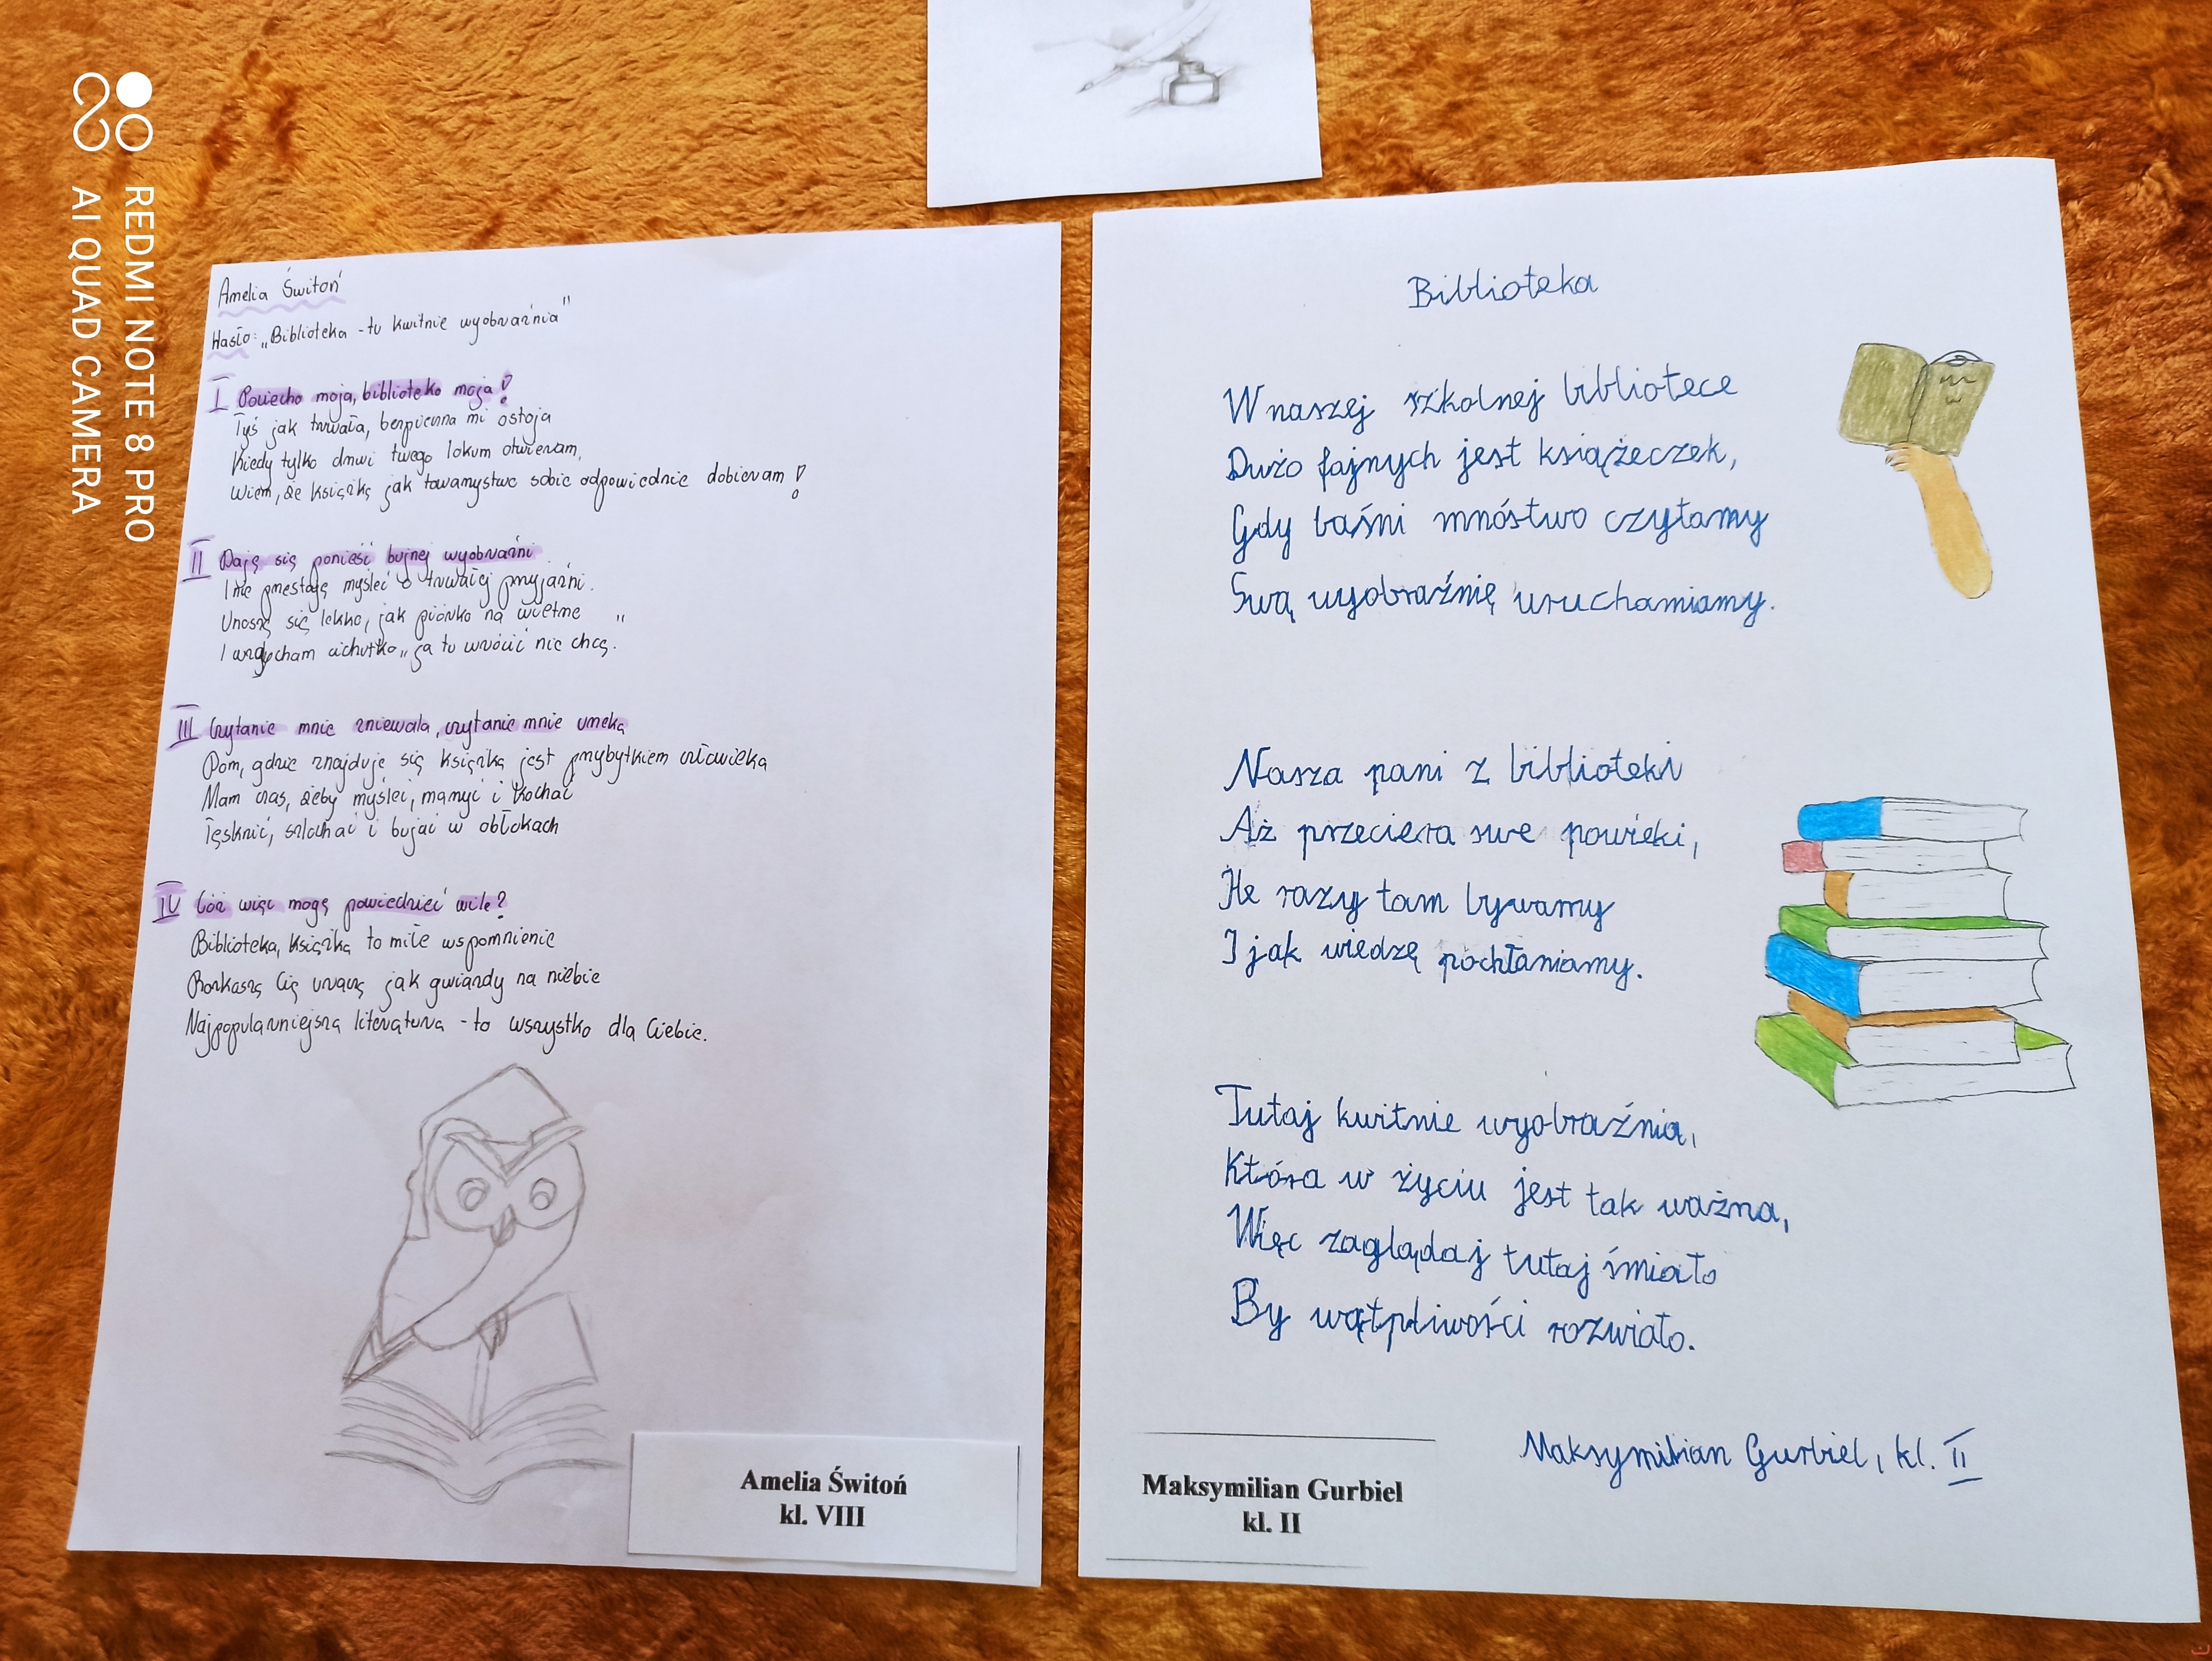 Amelia Świtoń
Hasło: „Biblioteka - tu kwitnie wyobraźnia"
I Pociecho moja, biblioteko moja!
Tyś jak trwała, bezpieczna mi ostoja
Kiedy tylko drzwi twego lokum otwieram,
Wiem, że książkę jak towarzystwo sobie odpowiednie dobieram!
II Daję się ponieść bujnej wyobraźni
I nie przestaję myśleć o trwałej przyjaźni.
Unoszę się lekko, jak piórko na wietrze
I wzdycham cichutko „ja tu wrócić nie chcę."
III Czytanie mnie zniewala, czytanie mnie urzeka
Dom, gdzie znajduje się książka jest przybytkiem człowieka
Mam czas, żeby myśleć, marzyć i kochać
Tęsknić, szlochać i bujać w obłokach
IV Cóż więc mogę powiedzieć wiele?
Biblioteka, książka to miłe wspomnienie
Rozkaszą Cię uraczą jak gwiazdy na niebie
Najpopularniejsza literatura - to wszystko dla Ciebie.
Amelia Świtoń
kl. VIII
Biblioteka
W naszej szkolnej bibliotece
Dużo fajnych jest książeczek,
Gdy baśni mnóstwo czytamy
Swą wyobraźnię uruchamiamy.
Nasza pani z biblioteki
Aż przeciera swe powieki,
Ile razy tam bywamy
I jak wiedzę pochłaniamy.
Tutaj kwitnie wyobraźnia,
Która w życiu jest tak ważna,
Więc zaglądaj tutaj śmiało
By wątpliwości rozwiało.
Maksymilian Gurbiel, kl. II
Maksymilian Gurbiel
kl. II
REDMI NOTE 8 PRO
AI QUAD CAMERA